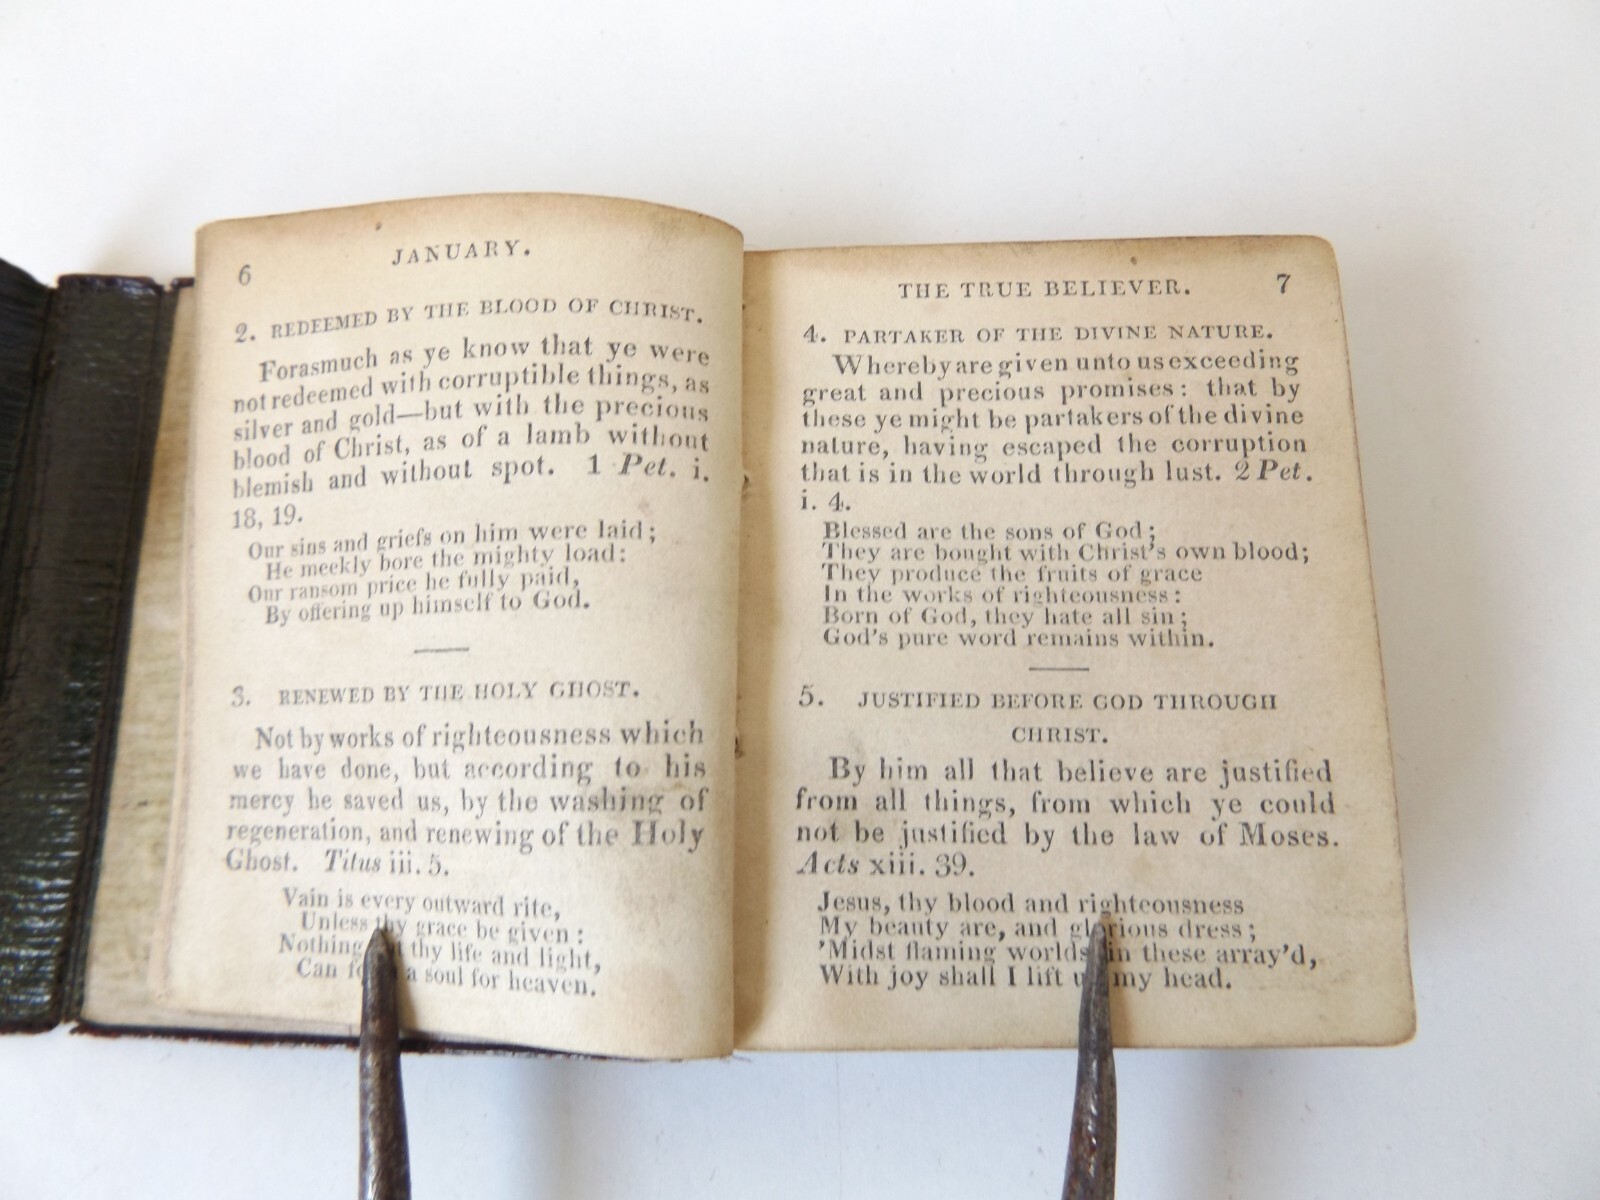 6
JANUARY.
2. REDEEMED BY THE BLOOD OF CHRIST.
Forasmuch as ye know that ye were
not redeemed with corruptible things, as
silver and gold—but with the precious
blood of Christ, as of a lamb without
blemish and without spot. 1 Pet. i.
18, 19.
Our sins and griefs on him were laid;
He meekly bore the mighty load:
Our ransom price he fully paid,
By offering up himself to God.
3. RENEWED BY THE HOLY GHOST.
Not by works of righteousness which
we have done, but according to his
mercy he saved us, by the washing of
regeneration, and renewing of the Holy
Ghost. Titus iii. 5.
Vain is every outward rite,
Unless thy grace be given:
Nothing thy life and light,
Can a soul for heaven.
THE TRUE BELIEVER.
7
4. PARTAKER OF THE DIVINE NATURE.
Whereby are given unto us exceeding
great and precious promises: that by
these ye might be partakers of the divine
nature, having escaped the corruption
that is in the world through lust. 2 Pet.
i. 4.
Blessed are the sons of God;
They are bought with Christ's own blood;
They produce the fruits of grace
In the works of righteousness:
Born of God, they hate all sin;
God's pure word remains within.
5. JUSTIFIED BEFORE GOD THROUGH
CHRIST.
By him all that believe are justified
from all things, from which ye could
not be justified by the law of Moses.
Acts xiii. 39.
Jesus, thy blood and righteousness
My beauty are, and glorious dress;
'Midst flaming worlds in these array'd,
With joy shall I lift up my head.